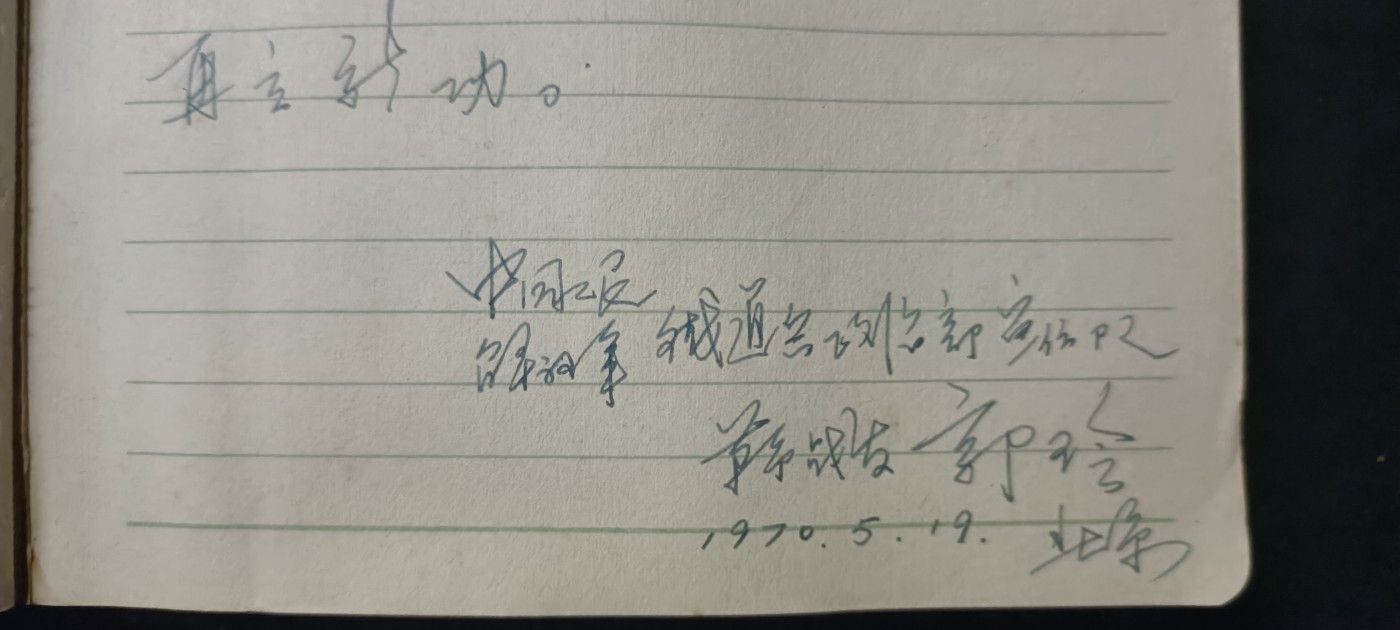 再立新功。
中国人民
解放军 铁道兵政治部宣传队
革命战友 郭玲
1970.5.19. 北京